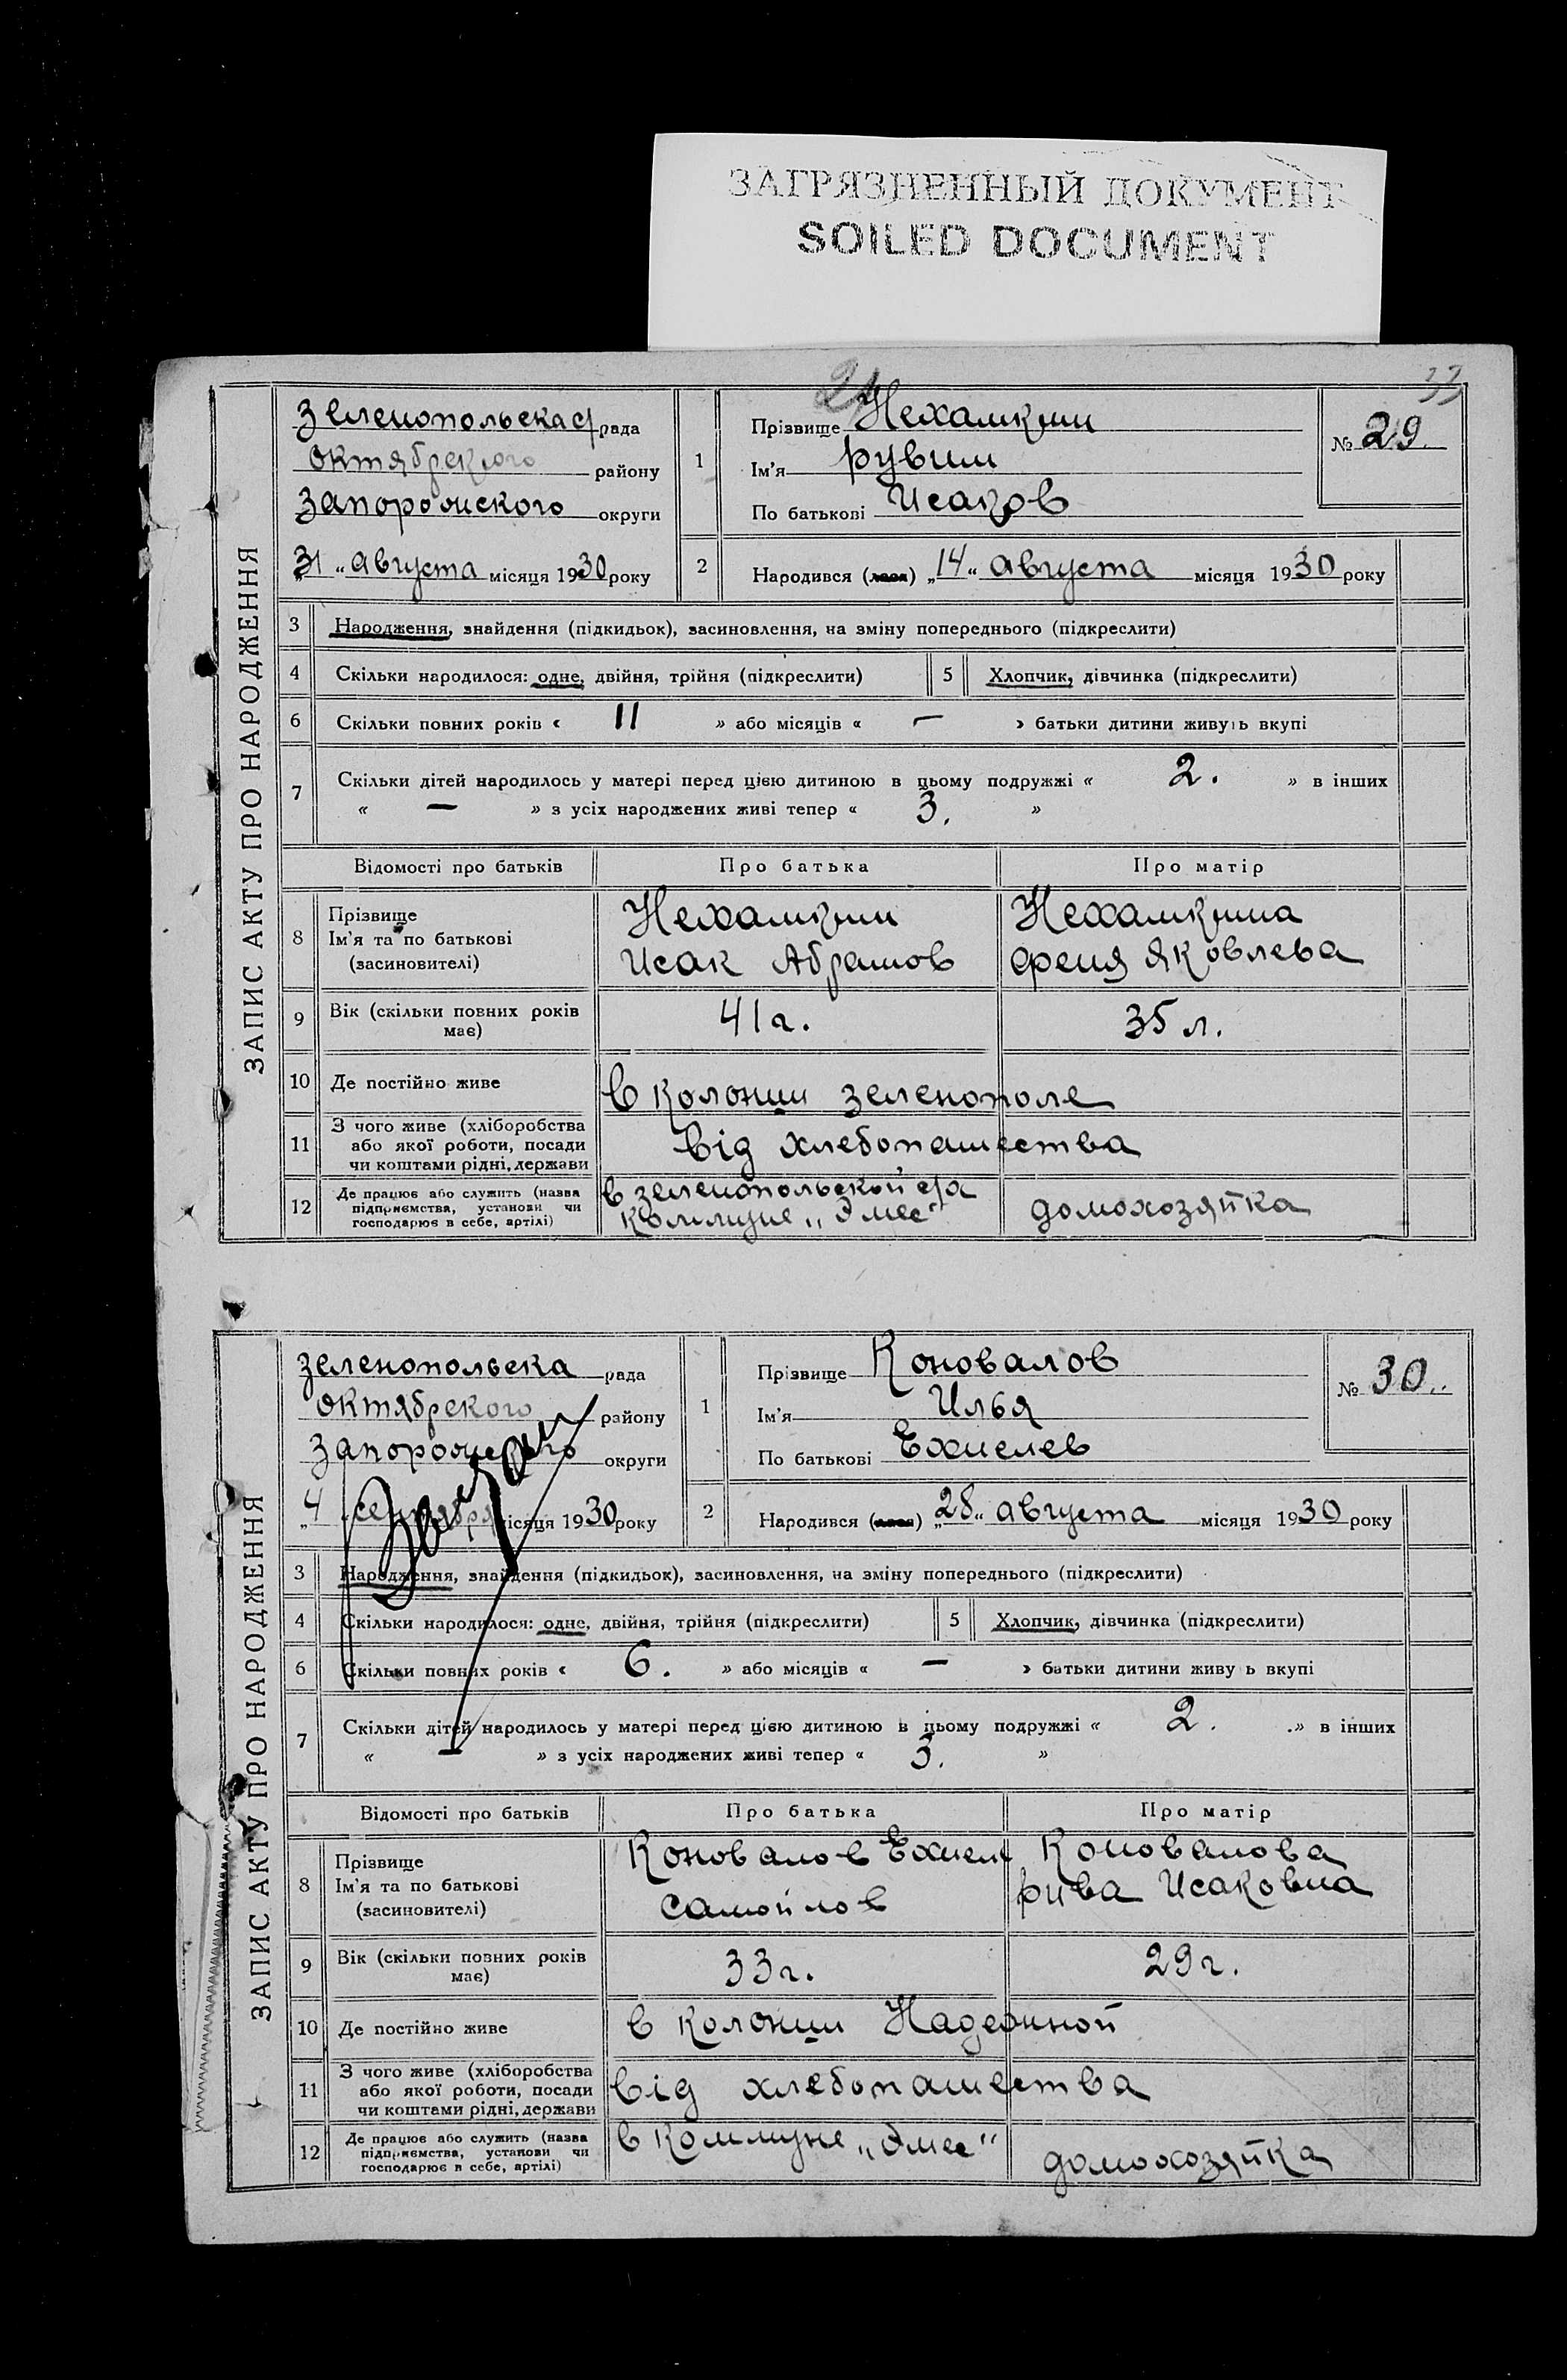 ЗАГРЯЗНЕННЫЙ ДОКУМЕНТ
SOILED DOCUMENT
ЗАПИС АКТУ ПРО НАРОДЖЕННЯ
Зеленопольска с/рада
Октябрского району
Запорожского округи
„31“ Августа місяця 1930 року
1 Прізвище Нехамкин
Ім'я Рувим
По батькові Исаков
№ 29.
2 Народився (лася) „14“ Августа місяця 1930 року
3 Народження, знайдення (підкидьок), засиновлення, на зміну попереднього (підкреслити)
4 Скільки народилося: одне, двійня, трійня (підкреслити) 5 Хлопчик, дівчинка (підкреслити)
6 Скільки повних років « 11 » або місяців « — » батьки дитини живуть вкупі
7 Скільки дітей народилось у матері перед цією дитиною в цьому подружжі « 2. » в інших
« — » з усіх народжених живі тепер « 3. »
Відомості про батьків Про батька Про матір
8 Прізвище Ім'я та по батькові (засиновителі)
Нехамкин Нехамкина
Исак Абрамов Феня Яковлева
9 Вік (скільки повних років має) 41 г. 35 л.
10 Де постійно живе В колонии Зеленополе
11 З чого живе (хліборобства або якої роботи, посади чи коштами рідні, держави Від хлебопашества
12 Де працює або служить (назва підприємства, установи чи господарює в себе, артілі)
В Зеленопольской с/х
Коммуне „Эмес“ домохозяйка
ЗАПИС АКТУ ПРО НАРОДЖЕННЯ
Зеленопольска рада
Октябрского району
Запорожского округи
„4 сентября місяця 1930 року
1 Прізвище Коновалов
Ім'я Илья
По батькові Ехиелев
№ 30.
2 Народився (лася) „28“ Августа місяця 1930 року
3 Народження, знайдення (підкидьок), засиновлення, на зміну попереднього (підкреслити)
4 Скільки народилося: одне, двійня, трійня (підкреслити) 5 Хлопчик, дівчинка (підкреслити)
6 Скільки повних років « 6. » або місяців « — » батьки дитини живу ь вкупі
7 Скільки дітей народилось у матері перед цією дитиною в цьому подружжі « 2. » в інших
« — » з усіх народжених живі тепер « 3. »
Відомості про батьків Про батька Про матір
8 Прізвище Ім'я та по батькові (засиновителі)
Коновалов Ехиел Коновалова
Самойлов Рива Исаковна
9 Вік (скільки повних років має) 33 г. 29 г.
10 Де постійно живе в колонии Надежной
11 З чого живе (хліборобства або якої роботи, посади чи коштами рідні, держави Від хлебопашества
12 Де працює або служить (назва підприємства, установи чи господарює в себе, артілі)
в Коммуне „Эмес“ домохозяйка